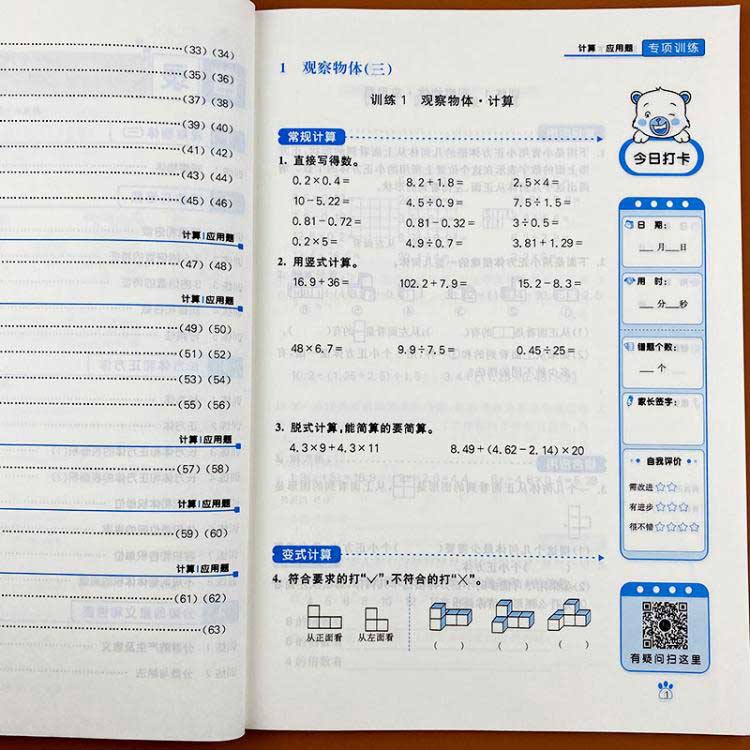 (33) (34)
(35) (36)
(37) (38)
(39) (40)
(41) (42)
(43) (44)
(45) (46)
计算|应用题
(47) (48)
计算|应用题
(49) (50)
(51) (52)
(53) (54)
(55) (56)
计算|应用题
(57) (58)
计算|应用题
(59) (60)
计算|应用题
(61) (62)
(63)
计算 应用题 专项训练
1 观察物体(三)
训练1 观察物体·计算
常规计算
1. 直接写得数。
0.2×0.4= 8.2+1.8= 2.5×4=
10-5.22= 4.5÷0.9= 7.5÷1.5=
0.81-0.72= 0.81-0.32= 3÷0.5=
0.2×5= 4.9÷0.7= 3.81+1.29=
2. 用竖式计算。
16.9+36= 102.2+7.9= 15.2-8.3=
48×6.7= 9.9÷7.5= 0.45÷25=
3. 脱式计算,能简算的要简算。
4.3×9+4.3×11 8.49+(4.62-2.14)×20
变式计算
4. 符合要求的打“✓”,不符合的打“╳”。
从正面看 从左面看 ( ) ( ) ( )
今日打卡
日 期:
月 日
用 时:
分 秒
错题个数:
个
家长签字:
自我评价
需改进☆☆
有进步☆☆☆
很不错☆☆☆☆
有疑问扫这里
1